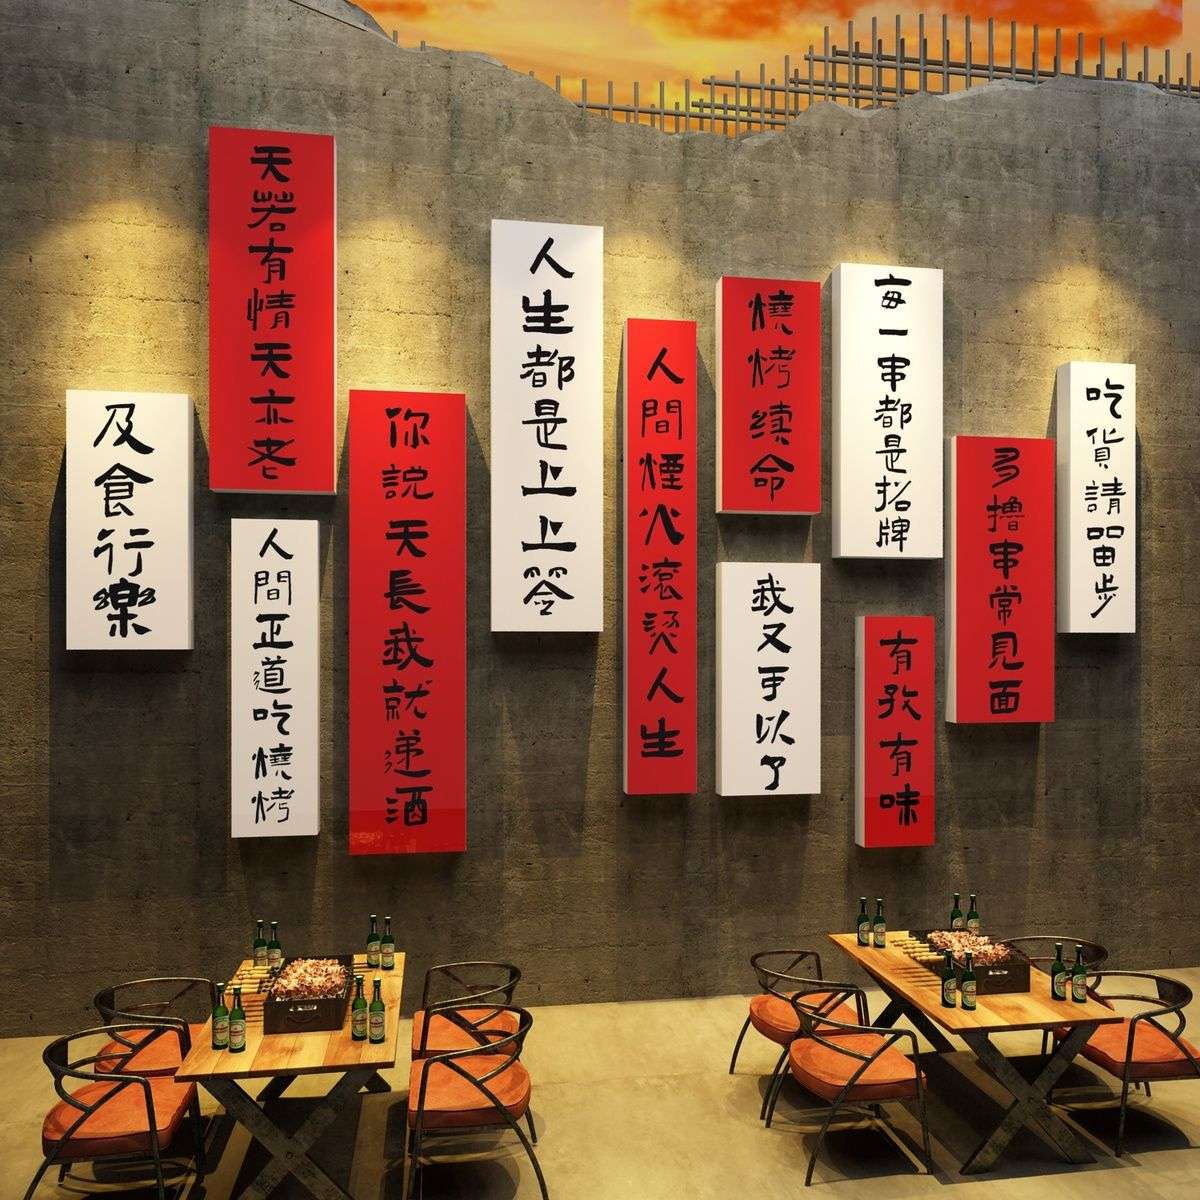 及食行樂
天若有情天亦老
人間正道吃燒烤
你説天長我就递酒
人生都是上上签
人間煙火滚烫人生
燒烤续命
我又可以了
每一串都是招牌
有孜有味
多撸串常見面
吃貨請畱步